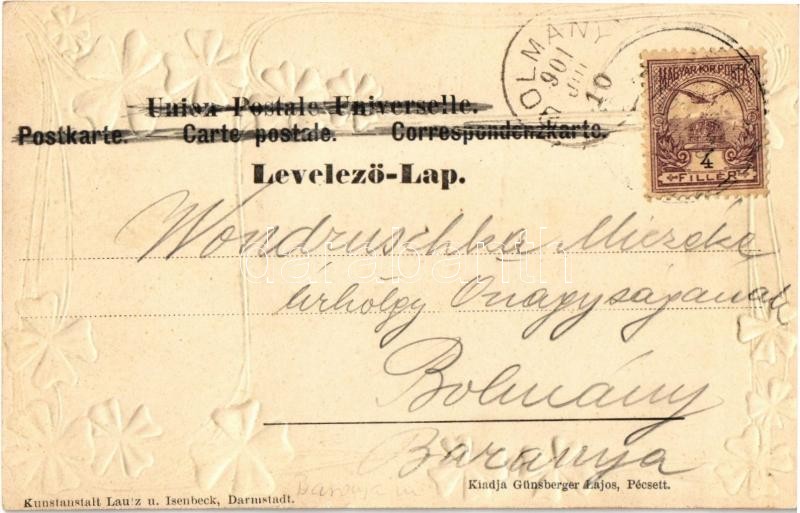 BOLMÁNY
901
10
MAGYAR KIR. POSTA
4
FILLÉR
Union Postale Universelle.
Postkarte. Carte postale. Correspondenzkarte.
Levelező-Lap.
Wondruschka Miczéke
úrhölgy Ònagyságának
Bolmány
Baranya
Baranya m
Kunstanstalt Lautz u. Isenbeck, Darmstadt.
Kiadja Günsberger Lajos, Pécsett.
darabanth